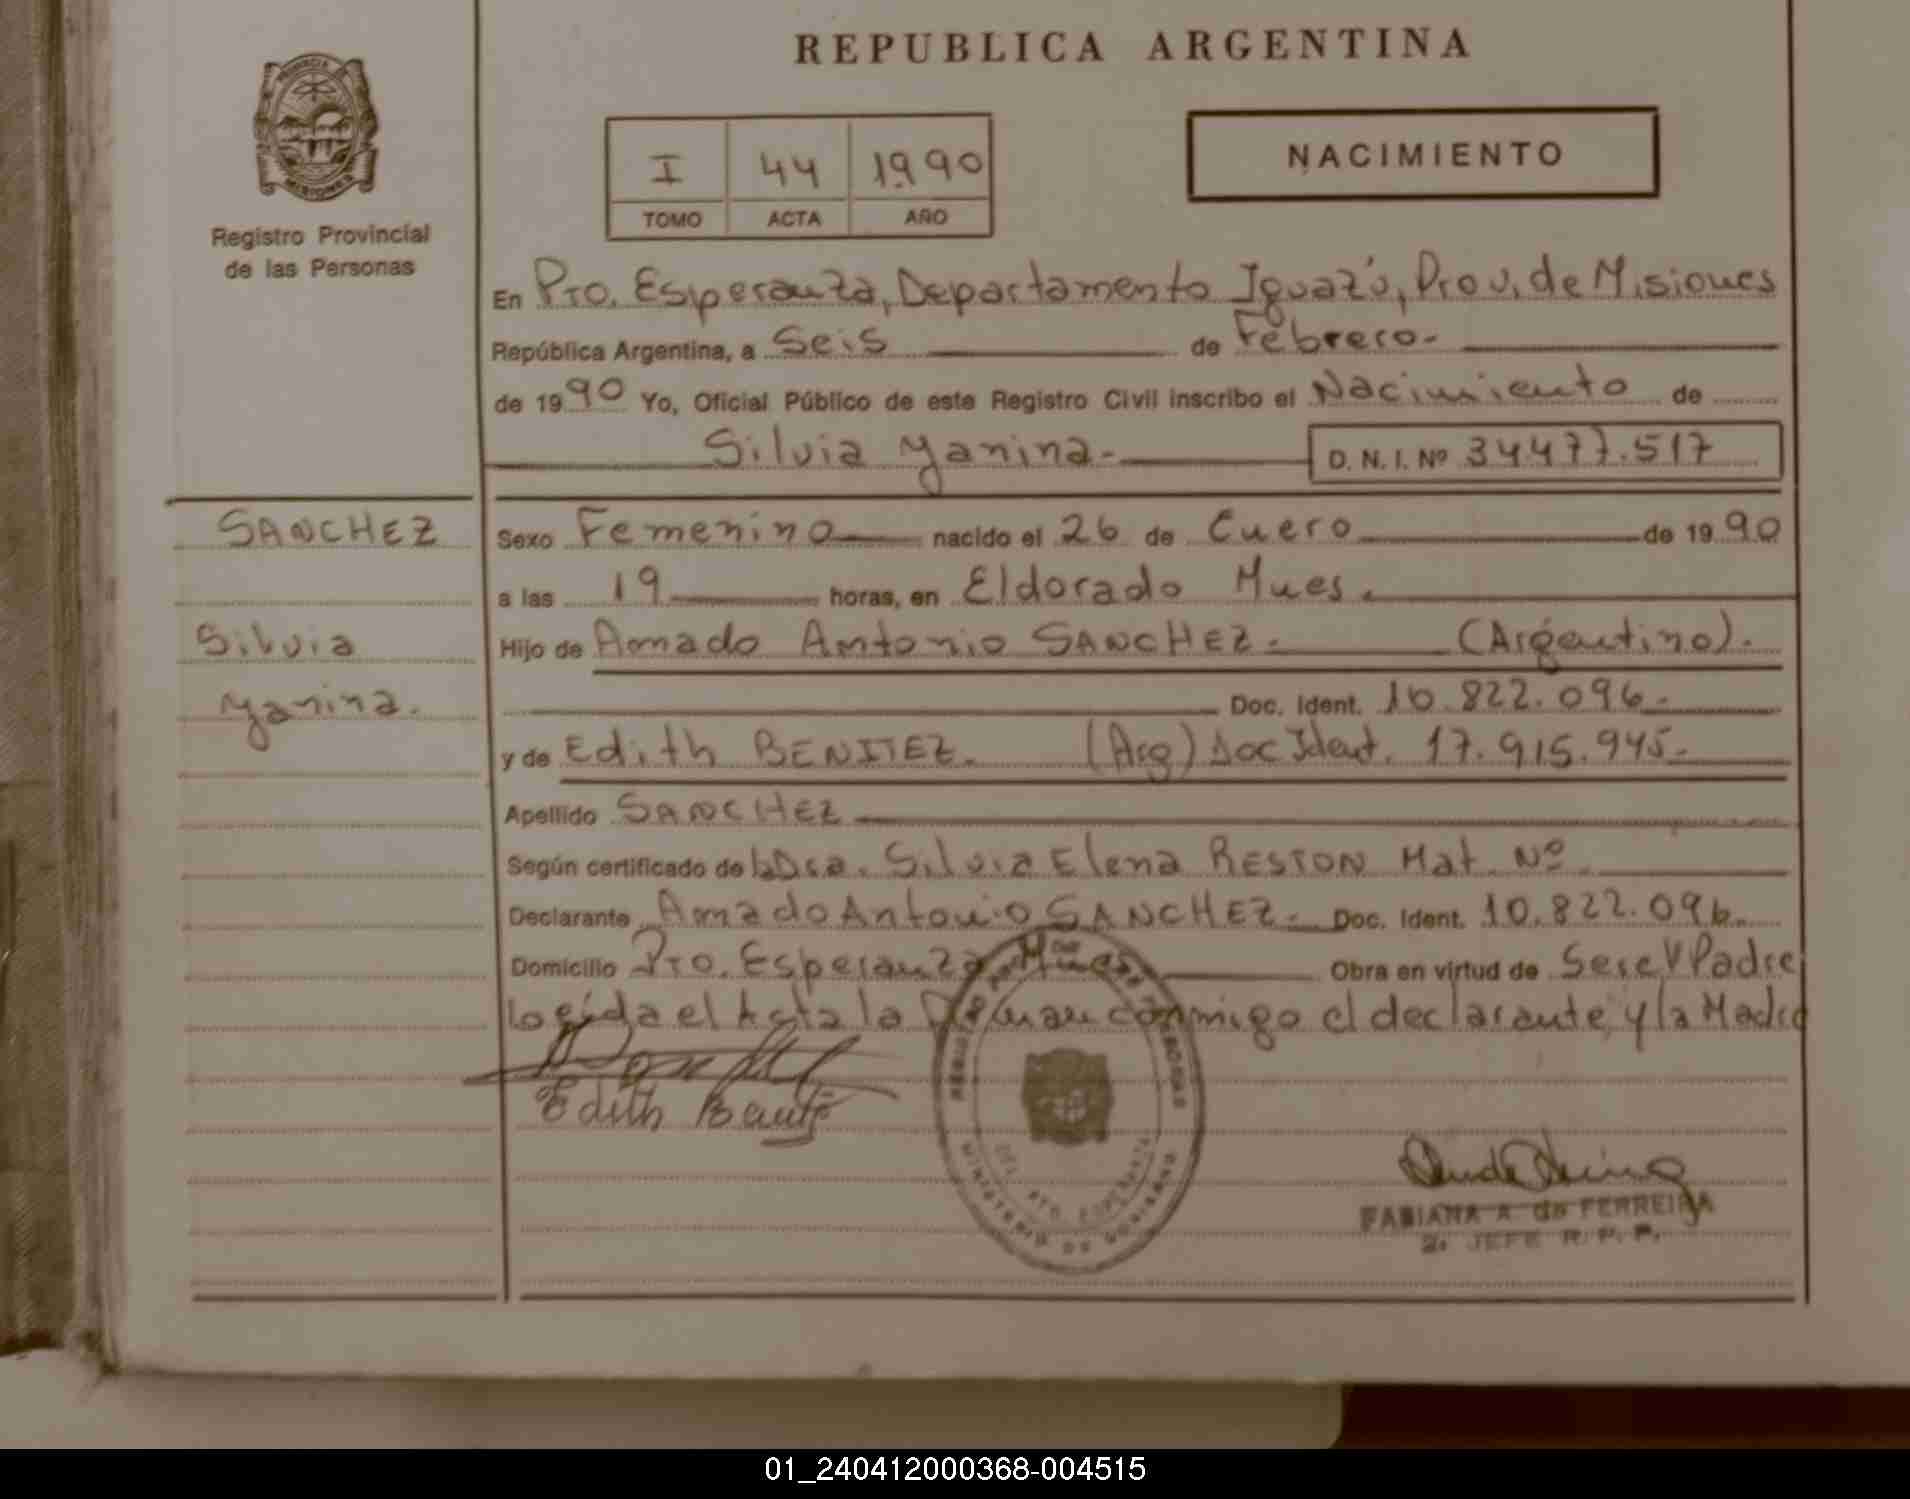 REPUBLICA ARGENTINA
PROVINCIA DE
MISIONES
Registro Provincial
de las Personas
I 44 1990
TOMO ACTA AÑO
NACIMIENTO
En Pto. Esperanza, Departamento Iguazú, Prov. de Misiones
República Argentina, a Seis de Febrero.-
de 1990 Yo, Oficial Público de este Registro Civil inscribo el Nacimiento de
Silvia Yanina.- D. N. I. Nº 34477.517
SANCHEZ
Silvia
Yanina.
Sexo Femenino nacido el 26 de Enero de 1990
a las 19 horas, en Eldorado Mnes.
Hijo de Amado Antonio SANCHEZ.- (Argentino).
Doc. Ident. 10.822.096.-
y de Edith BENITEZ. (Arg) Doc Ident. 17.915.945.-
Apellido SANCHEZ
Según certificado de la Dra. Silvia Elena RESTON Mat. Nº.
Declarante Amado Antonio SANCHEZ.- Doc. Ident. 10.822.096.
Domicilio Pto. Esperanza Mnes. Obra en virtud de Ser el Padre
Leída el Acta la Firman conmigo el declarante y la Madre
Edith Benitez
REGISTRO PROV. DE LAS PERSONAS
DEL. PTO. ESPERANZA
MINISTERIO DE GOBIERNO
FABIANA A. de FERREIRA
2. JEFE R. P. P.
01_240412000368-004515